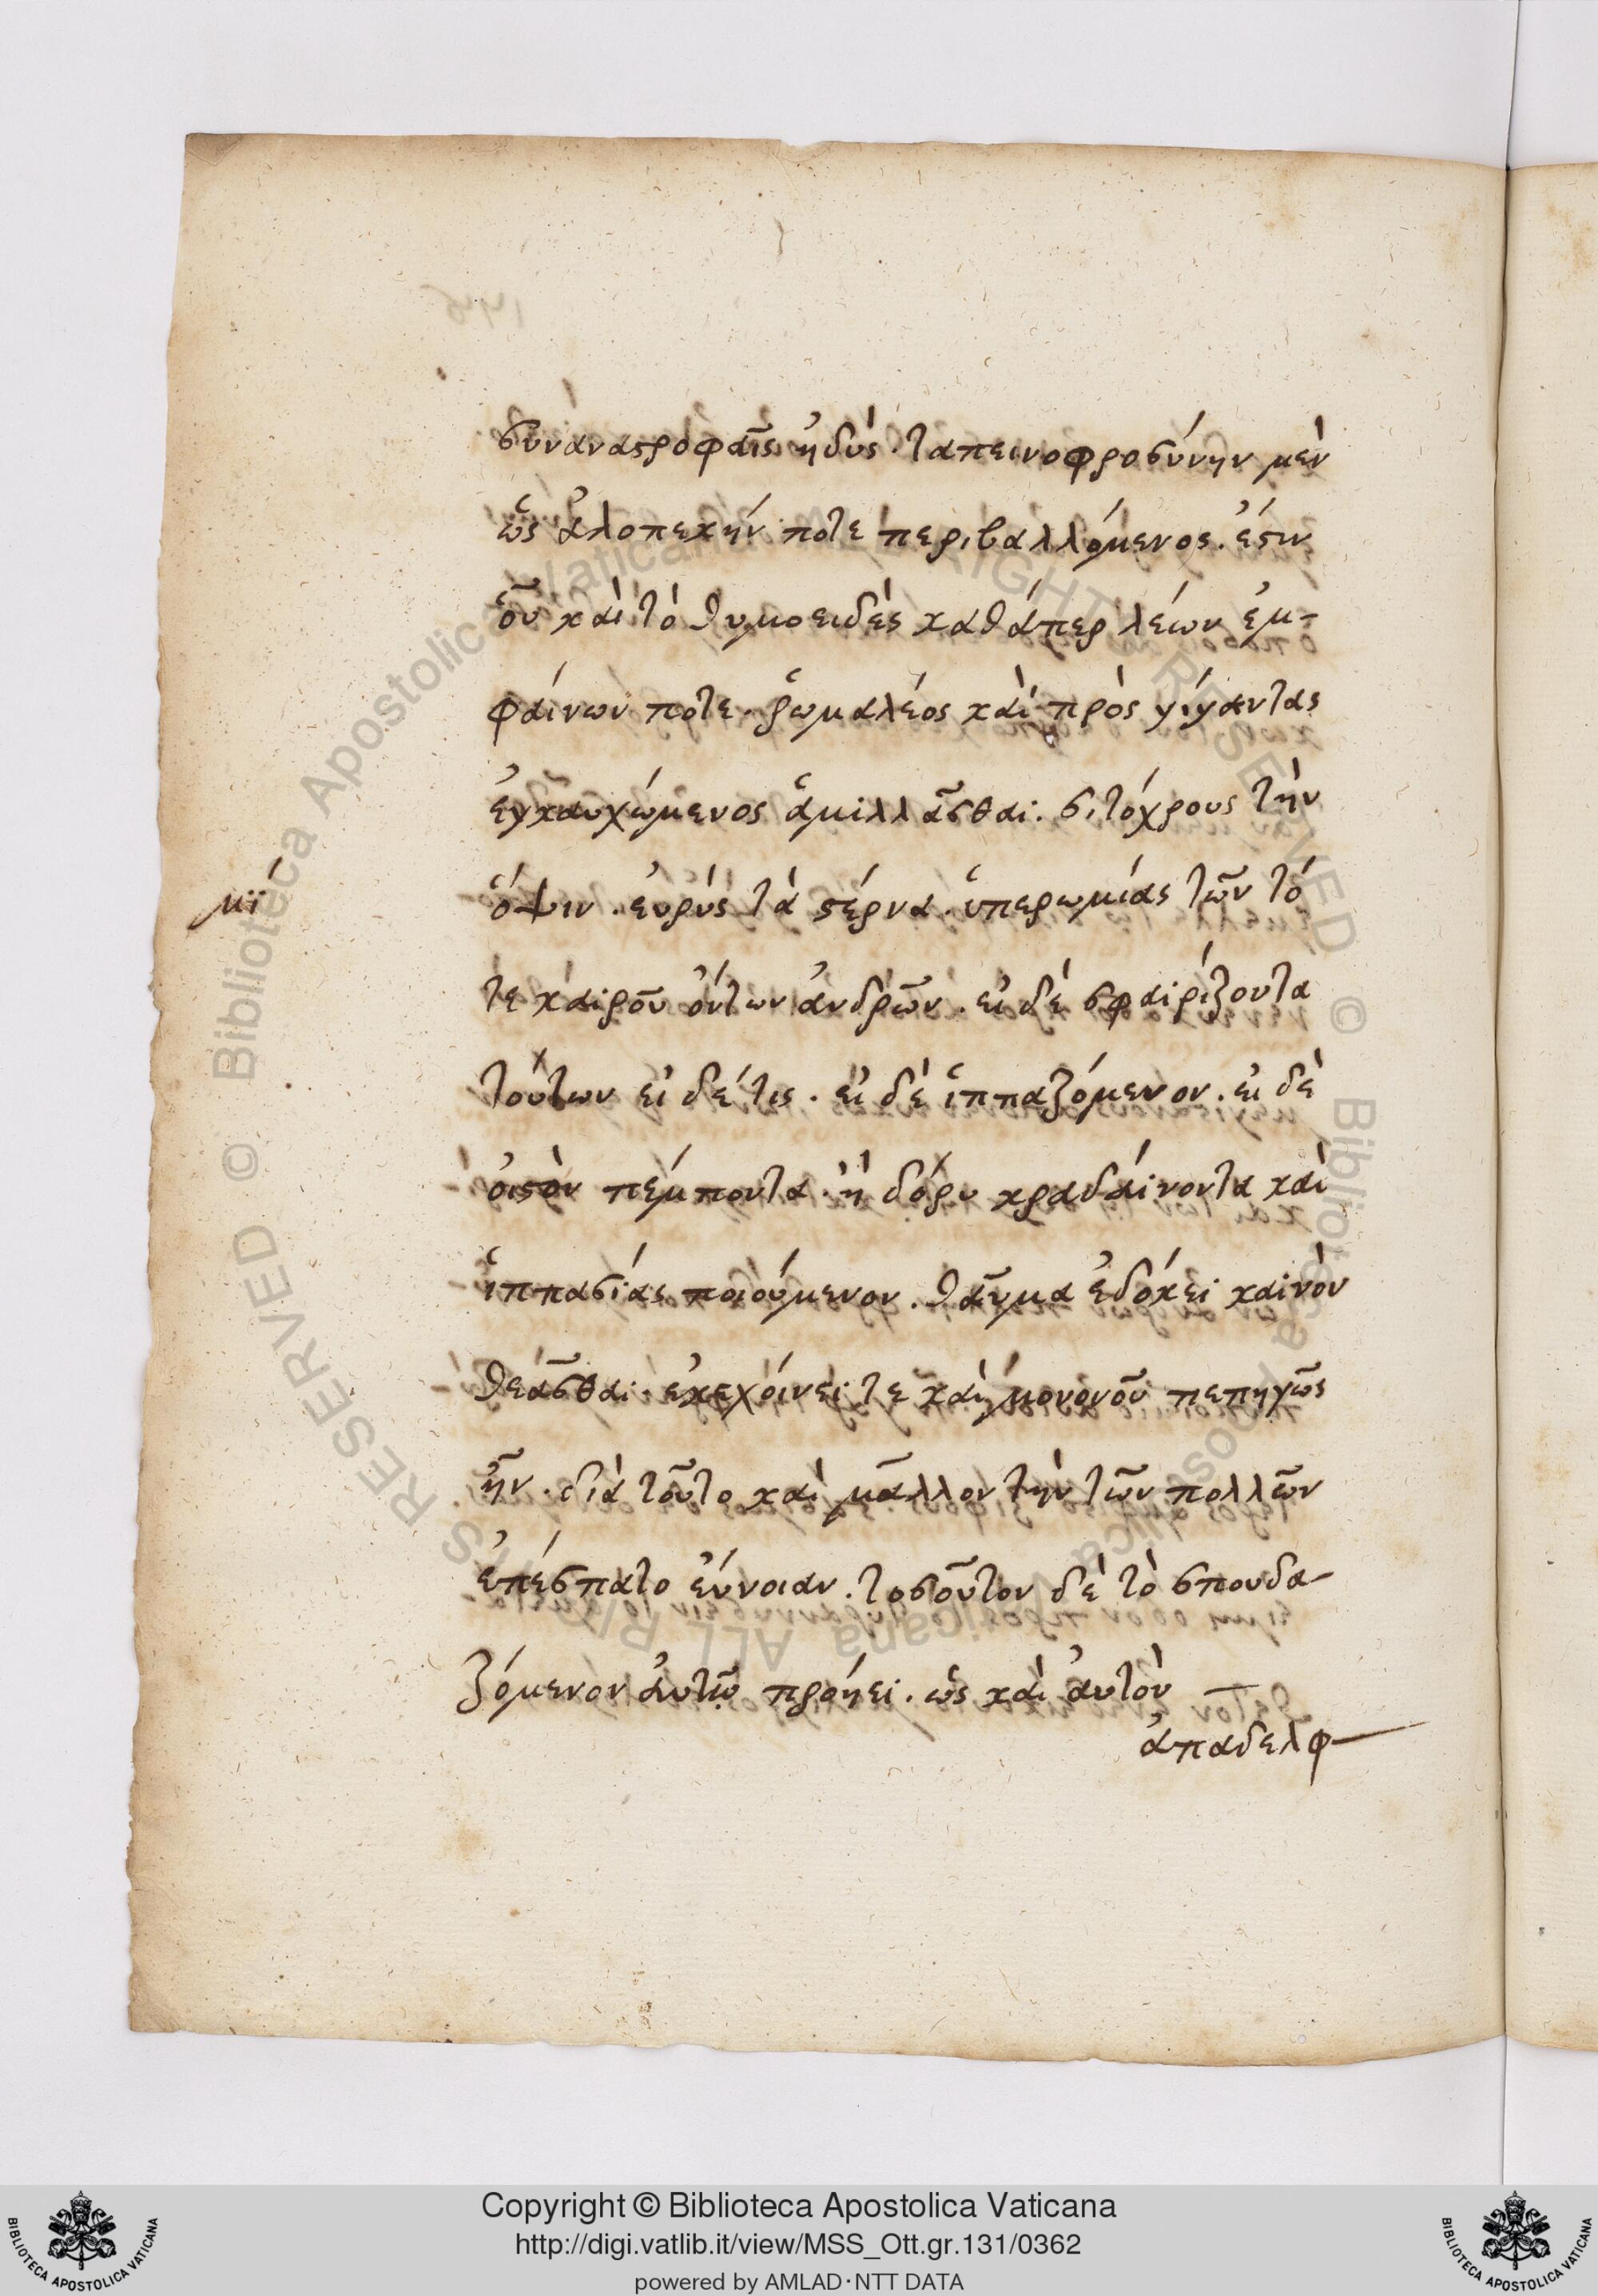 συναναστροφαῖς ἡδύς. ταπεινοφροσύνην μὲν
ὡς ἀλοπεκήν ποτε περιβαλλόμενος. ἔστιν
οὗ καὶ τὸ θυμοειδὲς καθάπερ λέων ἐμ-
φαίνων ποτε. ῥωμαλέος καὶ πρὸς γίγαντας
ἐγκαυχώμενος ἁμιλλᾶσθαι. σιτόχρους τὴν
ὄψιν. εὐρὺς τὰ στέρνα. ὑπερωμίας τῶν τό
μϊ
τε καιροῦ ὄντων ἀνδρῶν. εἰ δὲ σφαιρίζοντα
τούτων εἶδέ τις. εἰ δὲ ἱππαζόμενον. εἰ δὲ
ὀιστὸν πέμποντα. ἢ δόρυ κραδαίνοντα καὶ
ἱππασίας ποιούμενον. θαῦμα ἐδόκει καινὸν
θεᾶσθαι. ἐκεχοίνει τε καὶ μονονοῦ πεπηγὼς
ἦν. διὰ τοῦτο καὶ μᾶλλον τὴν τῶν πολλῶν
ἐπέσπατο εὔνοιαν. τοσοῦτον δὲ τὸ σπουδα-
ζόμενον αὐτῷ προήει. ὡς καὶ αὐτὸν
ἀπαδελφ
© Biblioteca Apostolica Vaticana ALL RIGHTS RESERVED
Copyright © Biblioteca Apostolica Vaticana
http://digi.vatlib.it/view/MSS_Ott.gr.131/0362
powered by AMLAD·NTT DATA
BIBLIOTECA APOSTOLICA VATICANA
BIBLIOTECA APOSTOLICA VATICANA